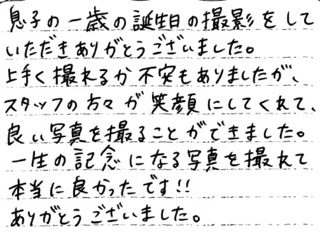 息子の一歳の誕生日の撮影をして
いただきありがとうございました。
上手く撮れるか不安もありましたが、
スタッフの方々が笑顔にしてくれて、
良い写真を撮ることができました。
一生の記念になる写真を撮れて
本当に良かったです!!
ありがとうございました。